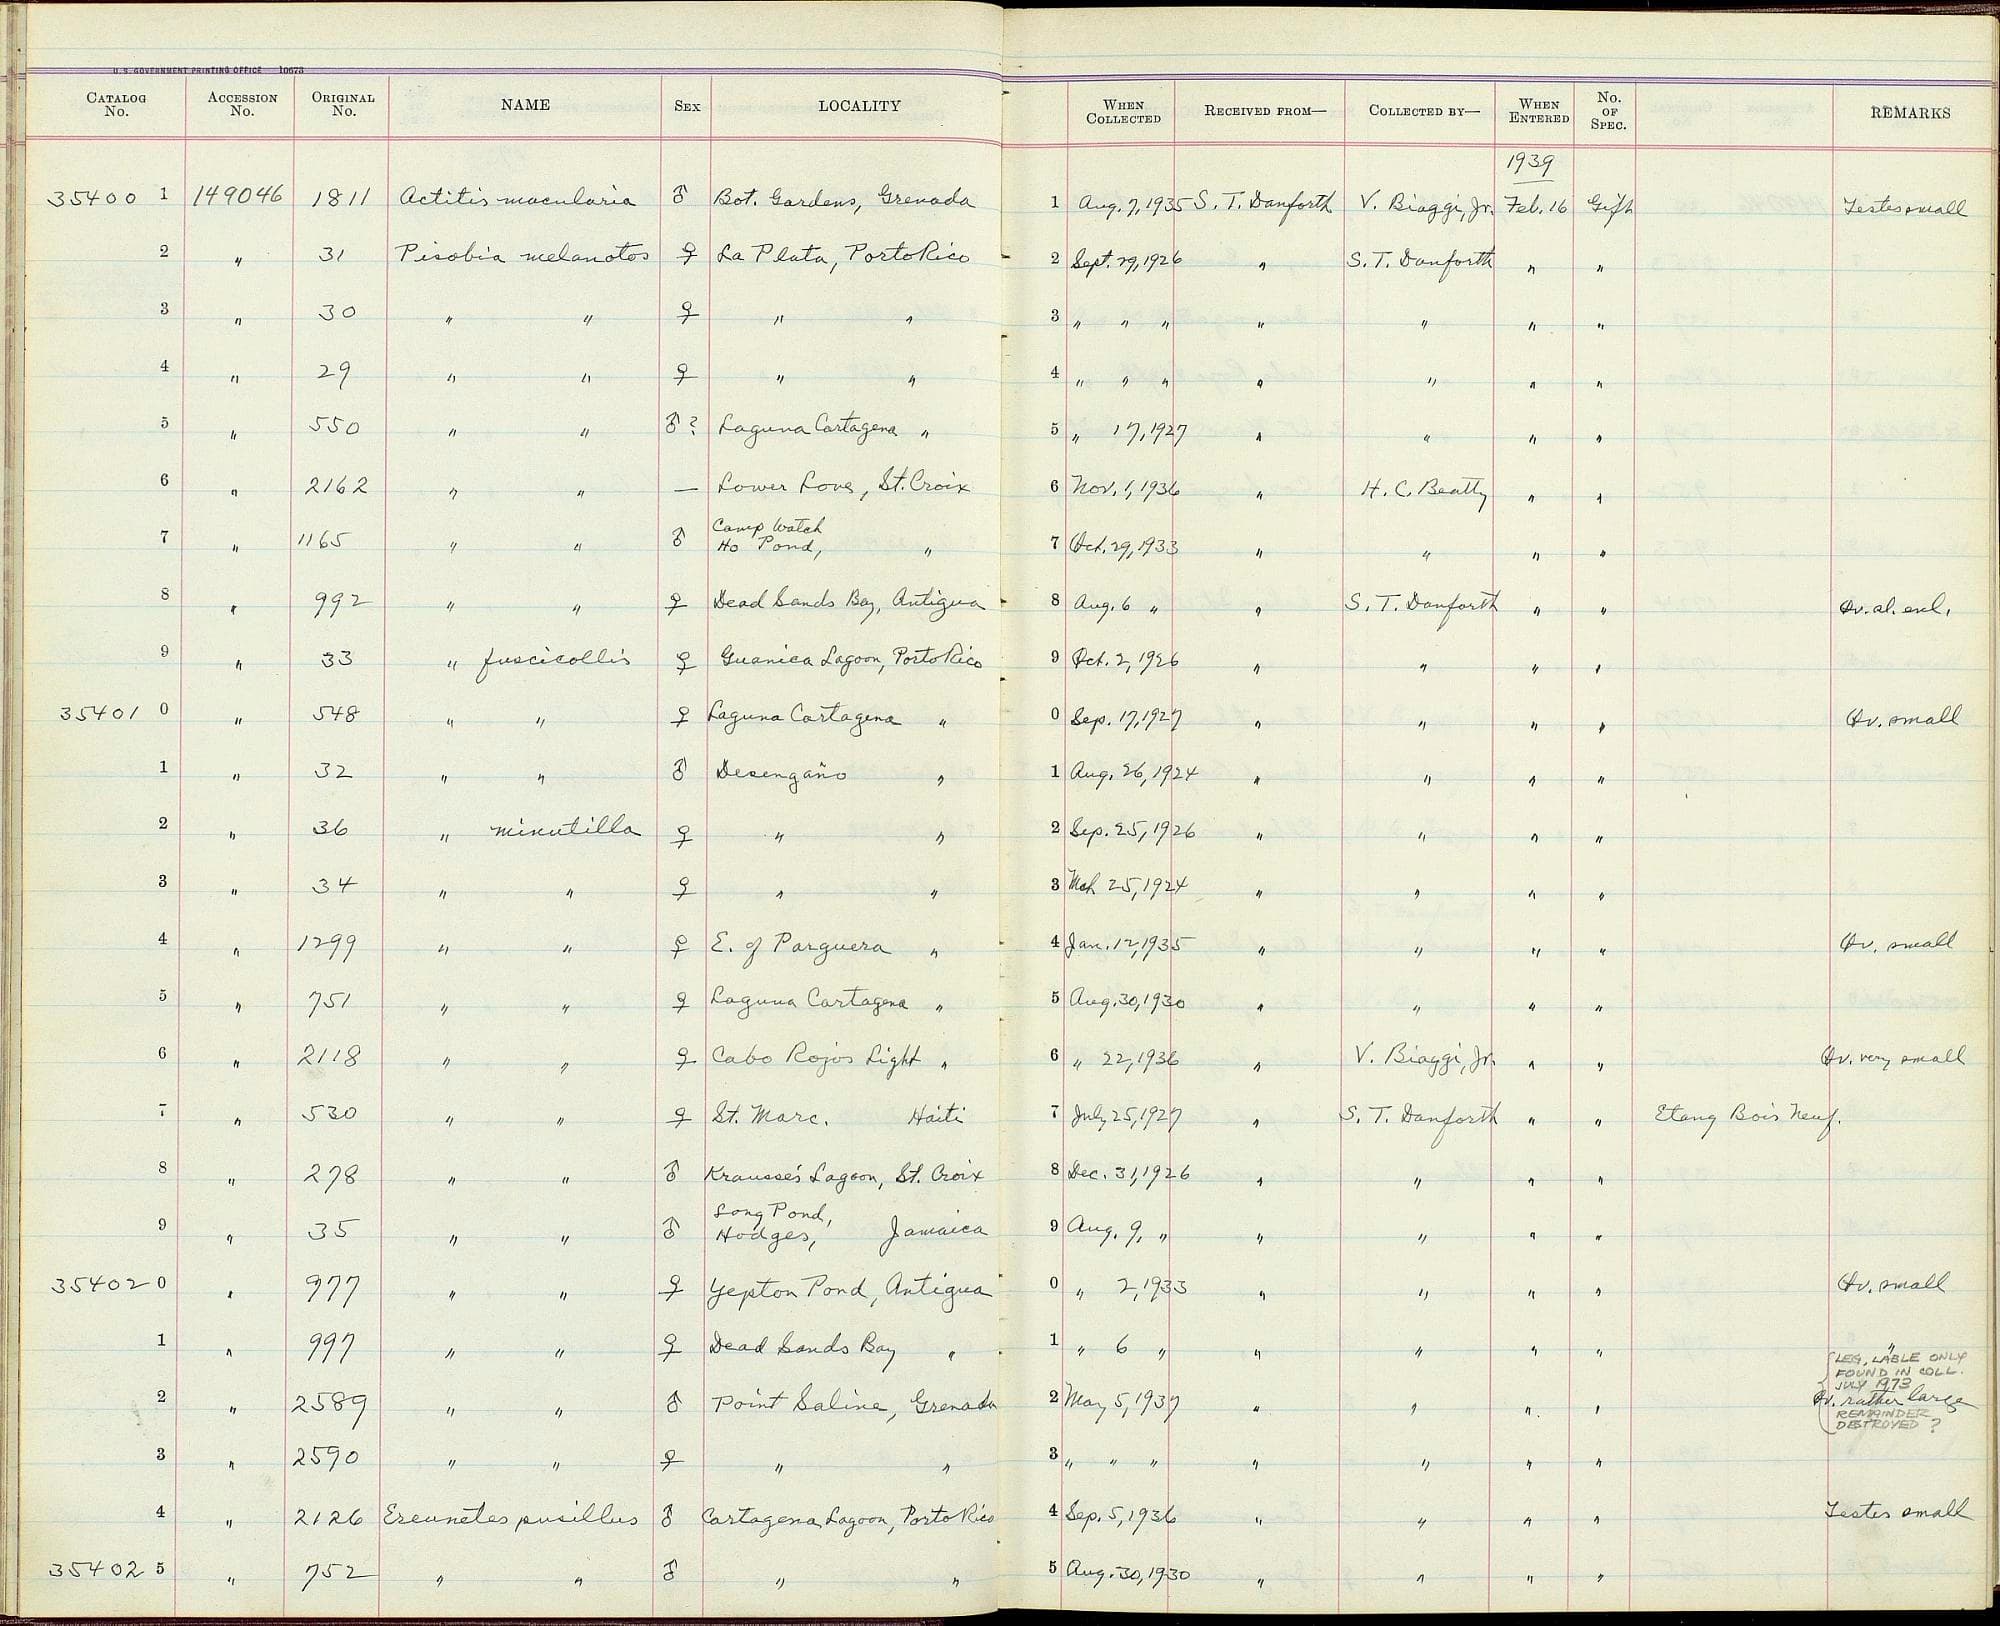 U.S. GOVERNMENT PRINTING OFFICE 10673
CATALOG No. ACCESSION No. ORIGINAL No. NAME SEX LOCALITY WHEN COLLECTED RECEIVED FROM— COLLECTED BY— WHEN ENTERED No. OF SPEC. REMARKS
1939
35400 1 149046 1811 Actitis macularia ♂ Bot. Gardens, Grenada 1 Aug. 7, 1935 S. T. Danforth V. Biaggi, Jr. Feb. 16 Gift Testes small
2 " 31 Pisobia melanotos ♀ La Plata, Porto Rico 2 Sept. 29, 1926 " S. T. Danforth " "
3 " 30 " " ♀ " " 3 " " " " " " "
4 " 29 " " ♀ " " 4 " " " " " " "
5 " 550 " " ♂? Laguna Cartagena " 5 " 17, 1927 " " " "
6 " 2162 " " — Lower Love, St. Croix 6 Nov. 1, 1936 " H. C. Beatty " "
7 " 1165 " " ♂ Camp Watch Ho Pond, " 7 Oct. 29, 1933 " " " "
8 " 992 " " ♀ Dead Sands Bay, Antigua 8 Aug. 6 " " S. T. Danforth " " Ov. sl. enl.
9 " 33 " fuscicollis ♀ Guanica Lagoon, Porto Rico 9 Oct. 2, 1926 " " " "
35401 0 " 548 " " ♀ Laguna Cartagena " 0 Sep. 17, 1927 " " " " Ov. small
1 " 32 " " ♂ Desengaño " 1 Aug. 26, 1924 " " " "
2 " 36 " minutilla ♀ " " 2 Sep. 25, 1926 " " " "
3 " 34 " " ♀ " " 3 Mch 25, 1924 " " " "
4 " 1299 " " ♀ E. of Parguera " 4 Jan. 12, 1935 " " " " Ov. small
5 " 751 " " ♀ Laguna Cartagena " 5 Aug. 30, 1930 " " " "
6 " 2118 " " ♀ Cabo Rojos Light " 6 " 22, 1936 " V. Biaggi, Jr. " " Ov. very small
7 " 530 " " ♀ St. Marc. Haiti 7 July 25, 1927 " S. T. Danforth " " Etang Bois Neuf.
8 " 278 " " ♂ Krausse's Lagoon, St. Croix 8 Dec. 31, 1926 " " " "
9 " 35 " " ♂ Long Pond, Hodges, Jamaica 9 Aug. 9, " " " " "
35402 0 " 977 " " ♀ Yepton Pond, Antigua 0 " 2, 1933 " " " " Ov. small
1 " 997 " " ♀ Dead Sands Bay " 1 " 6 " " " " " "
LEG, LABLE ONLY
FOUND IN COLL.
JULY 1973
2 " 2589 " " ♂ Point Saline, Grenada 2 May 5, 1937 " " " " Ov. rather large
REMAINDER
DESTROYED?
3 " 2590 " " ♀ " " 3 " " " " " " "
4 " 2126 Ereunetes pusillus ♂ Cartagena Lagoon, Porto Rico 4 Sep. 5, 1936 " " " " Testes small
35402 5 " 752 " " ♂ " " 5 Aug. 30, 1930 " " " "